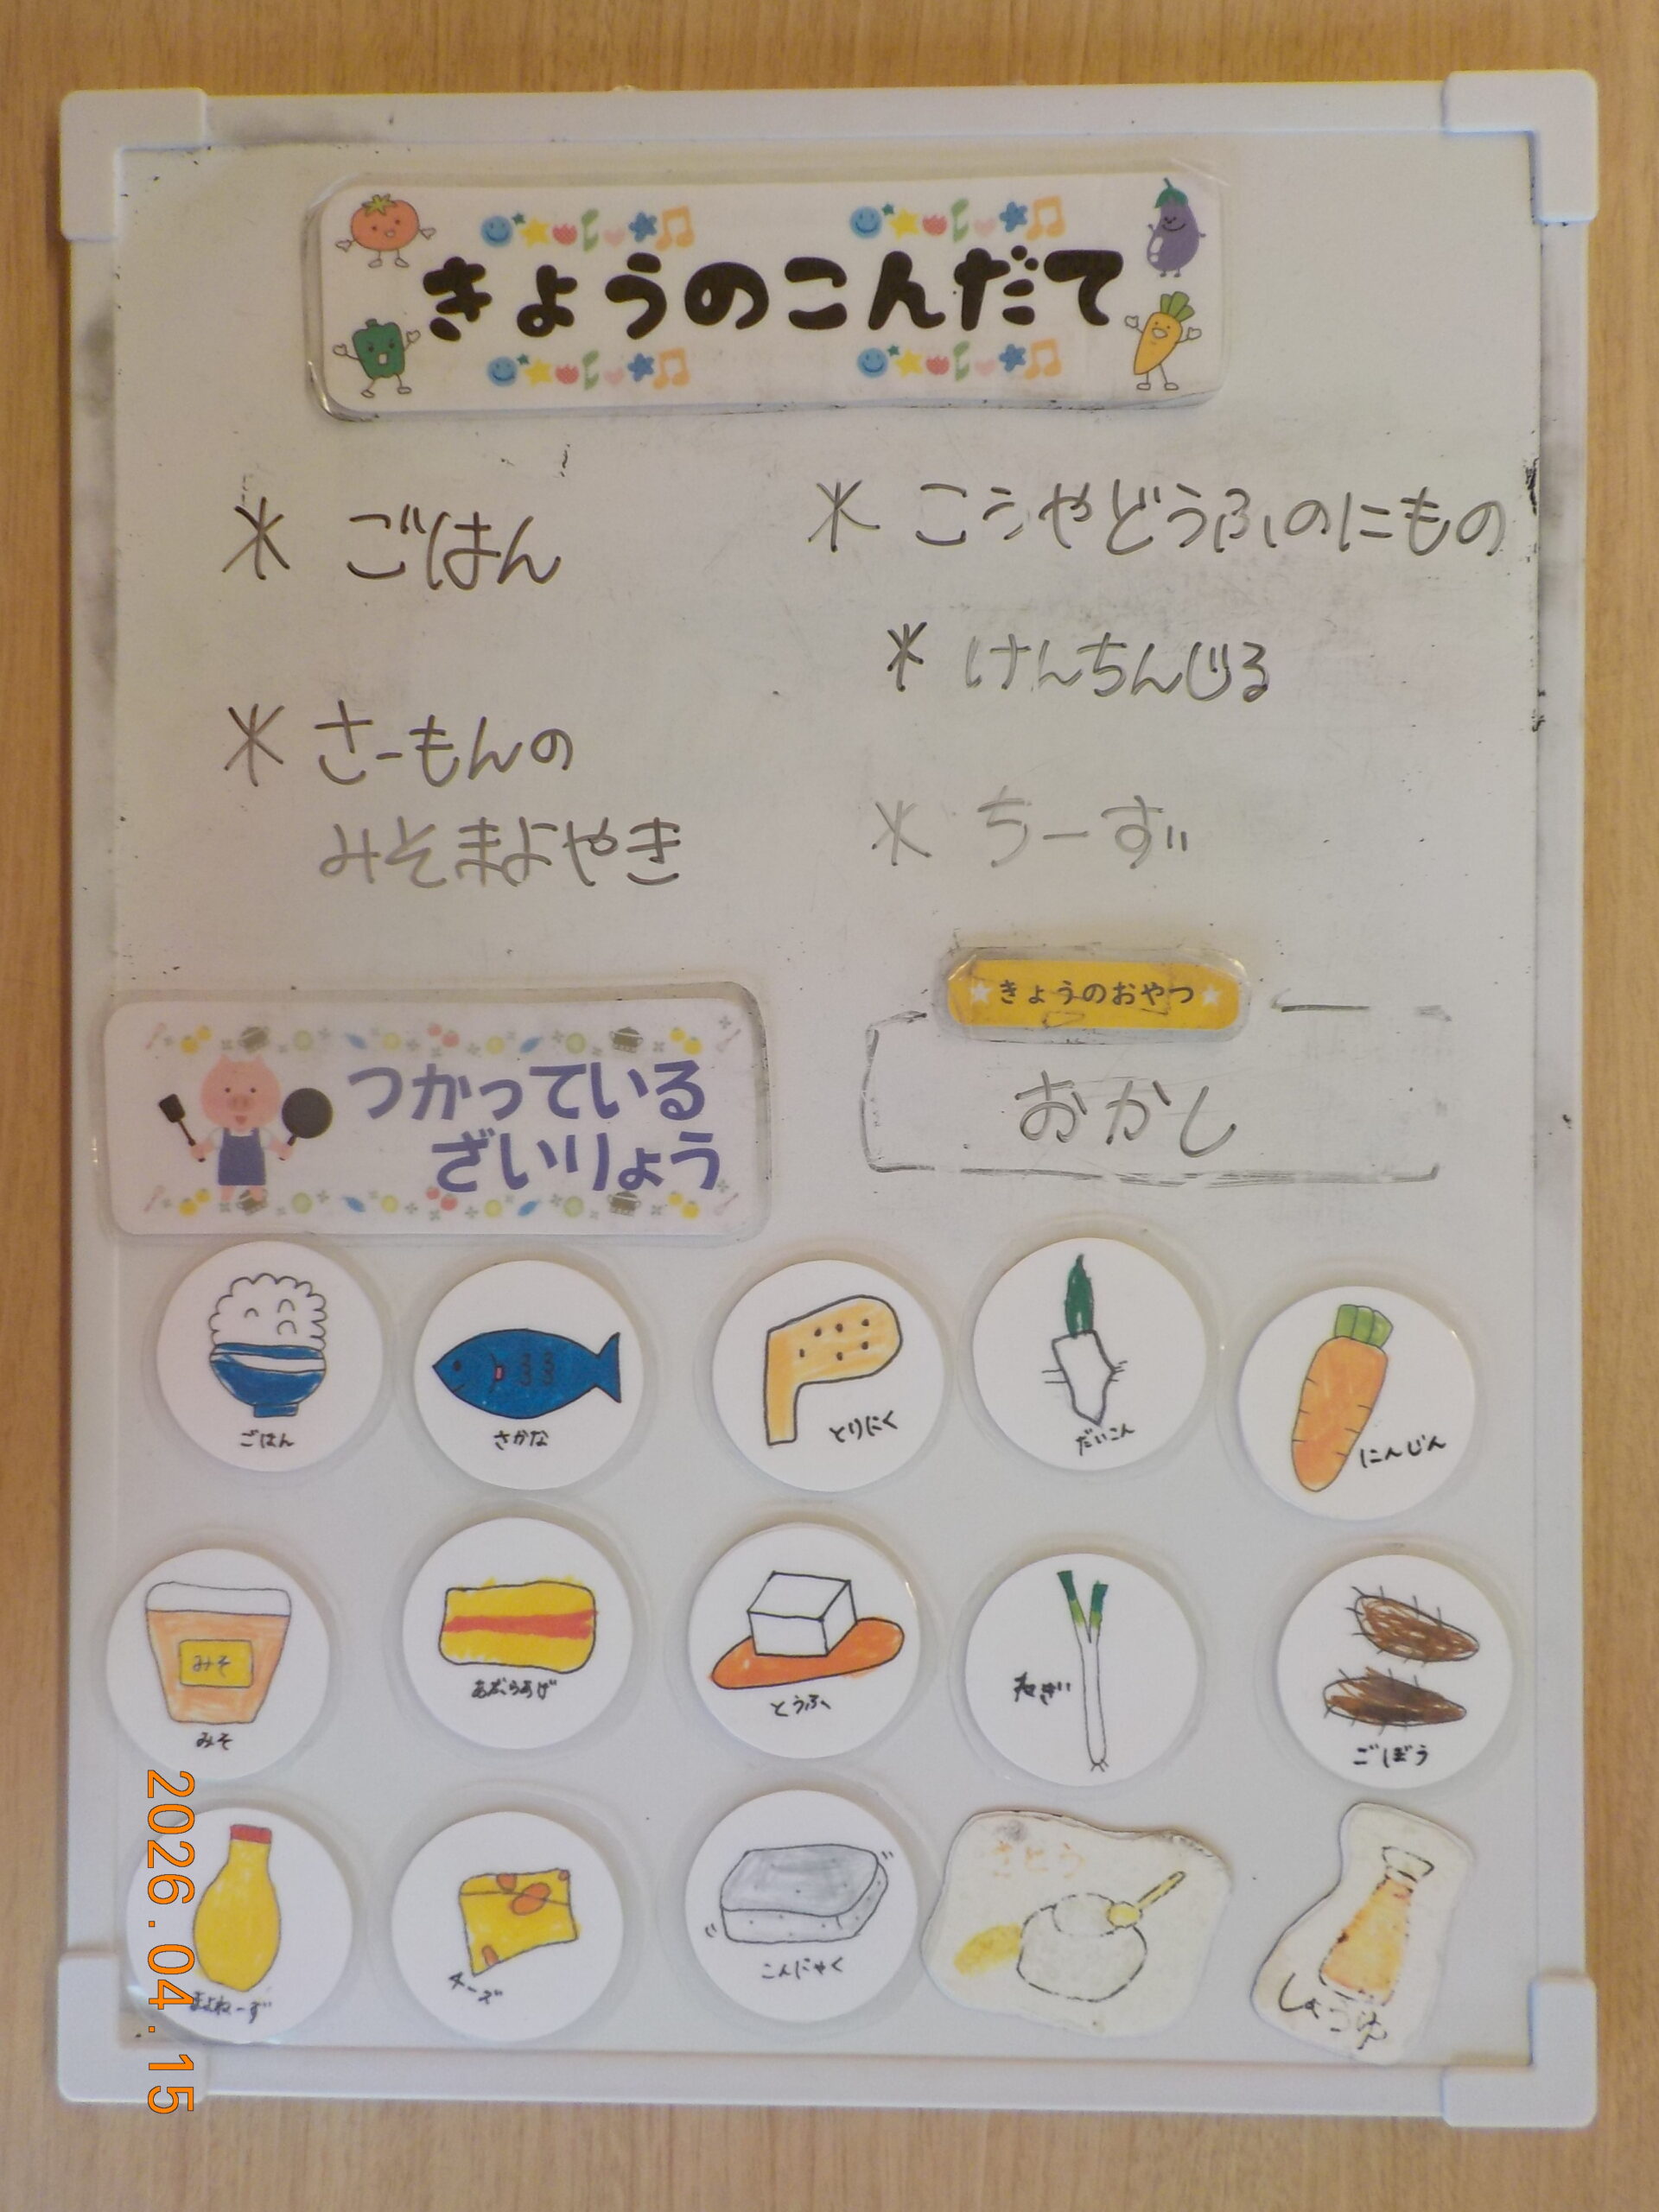 きょうのこんだて
* ごはん
* さーもんの
みそまよやき
* こうやどうふのにもの
* けんちんじる
* ちーず
きょうのおやつ
おかし
つかっている
ざいりょう
ごはん
さかな
とりにく
だいこん
にんじん
みそ
みそ
あぶらあげ
とうふ
ねぎ
ごぼう
まよねーず
チーズ
こんにゃく
さとう
しょうゆ
2026.04.15